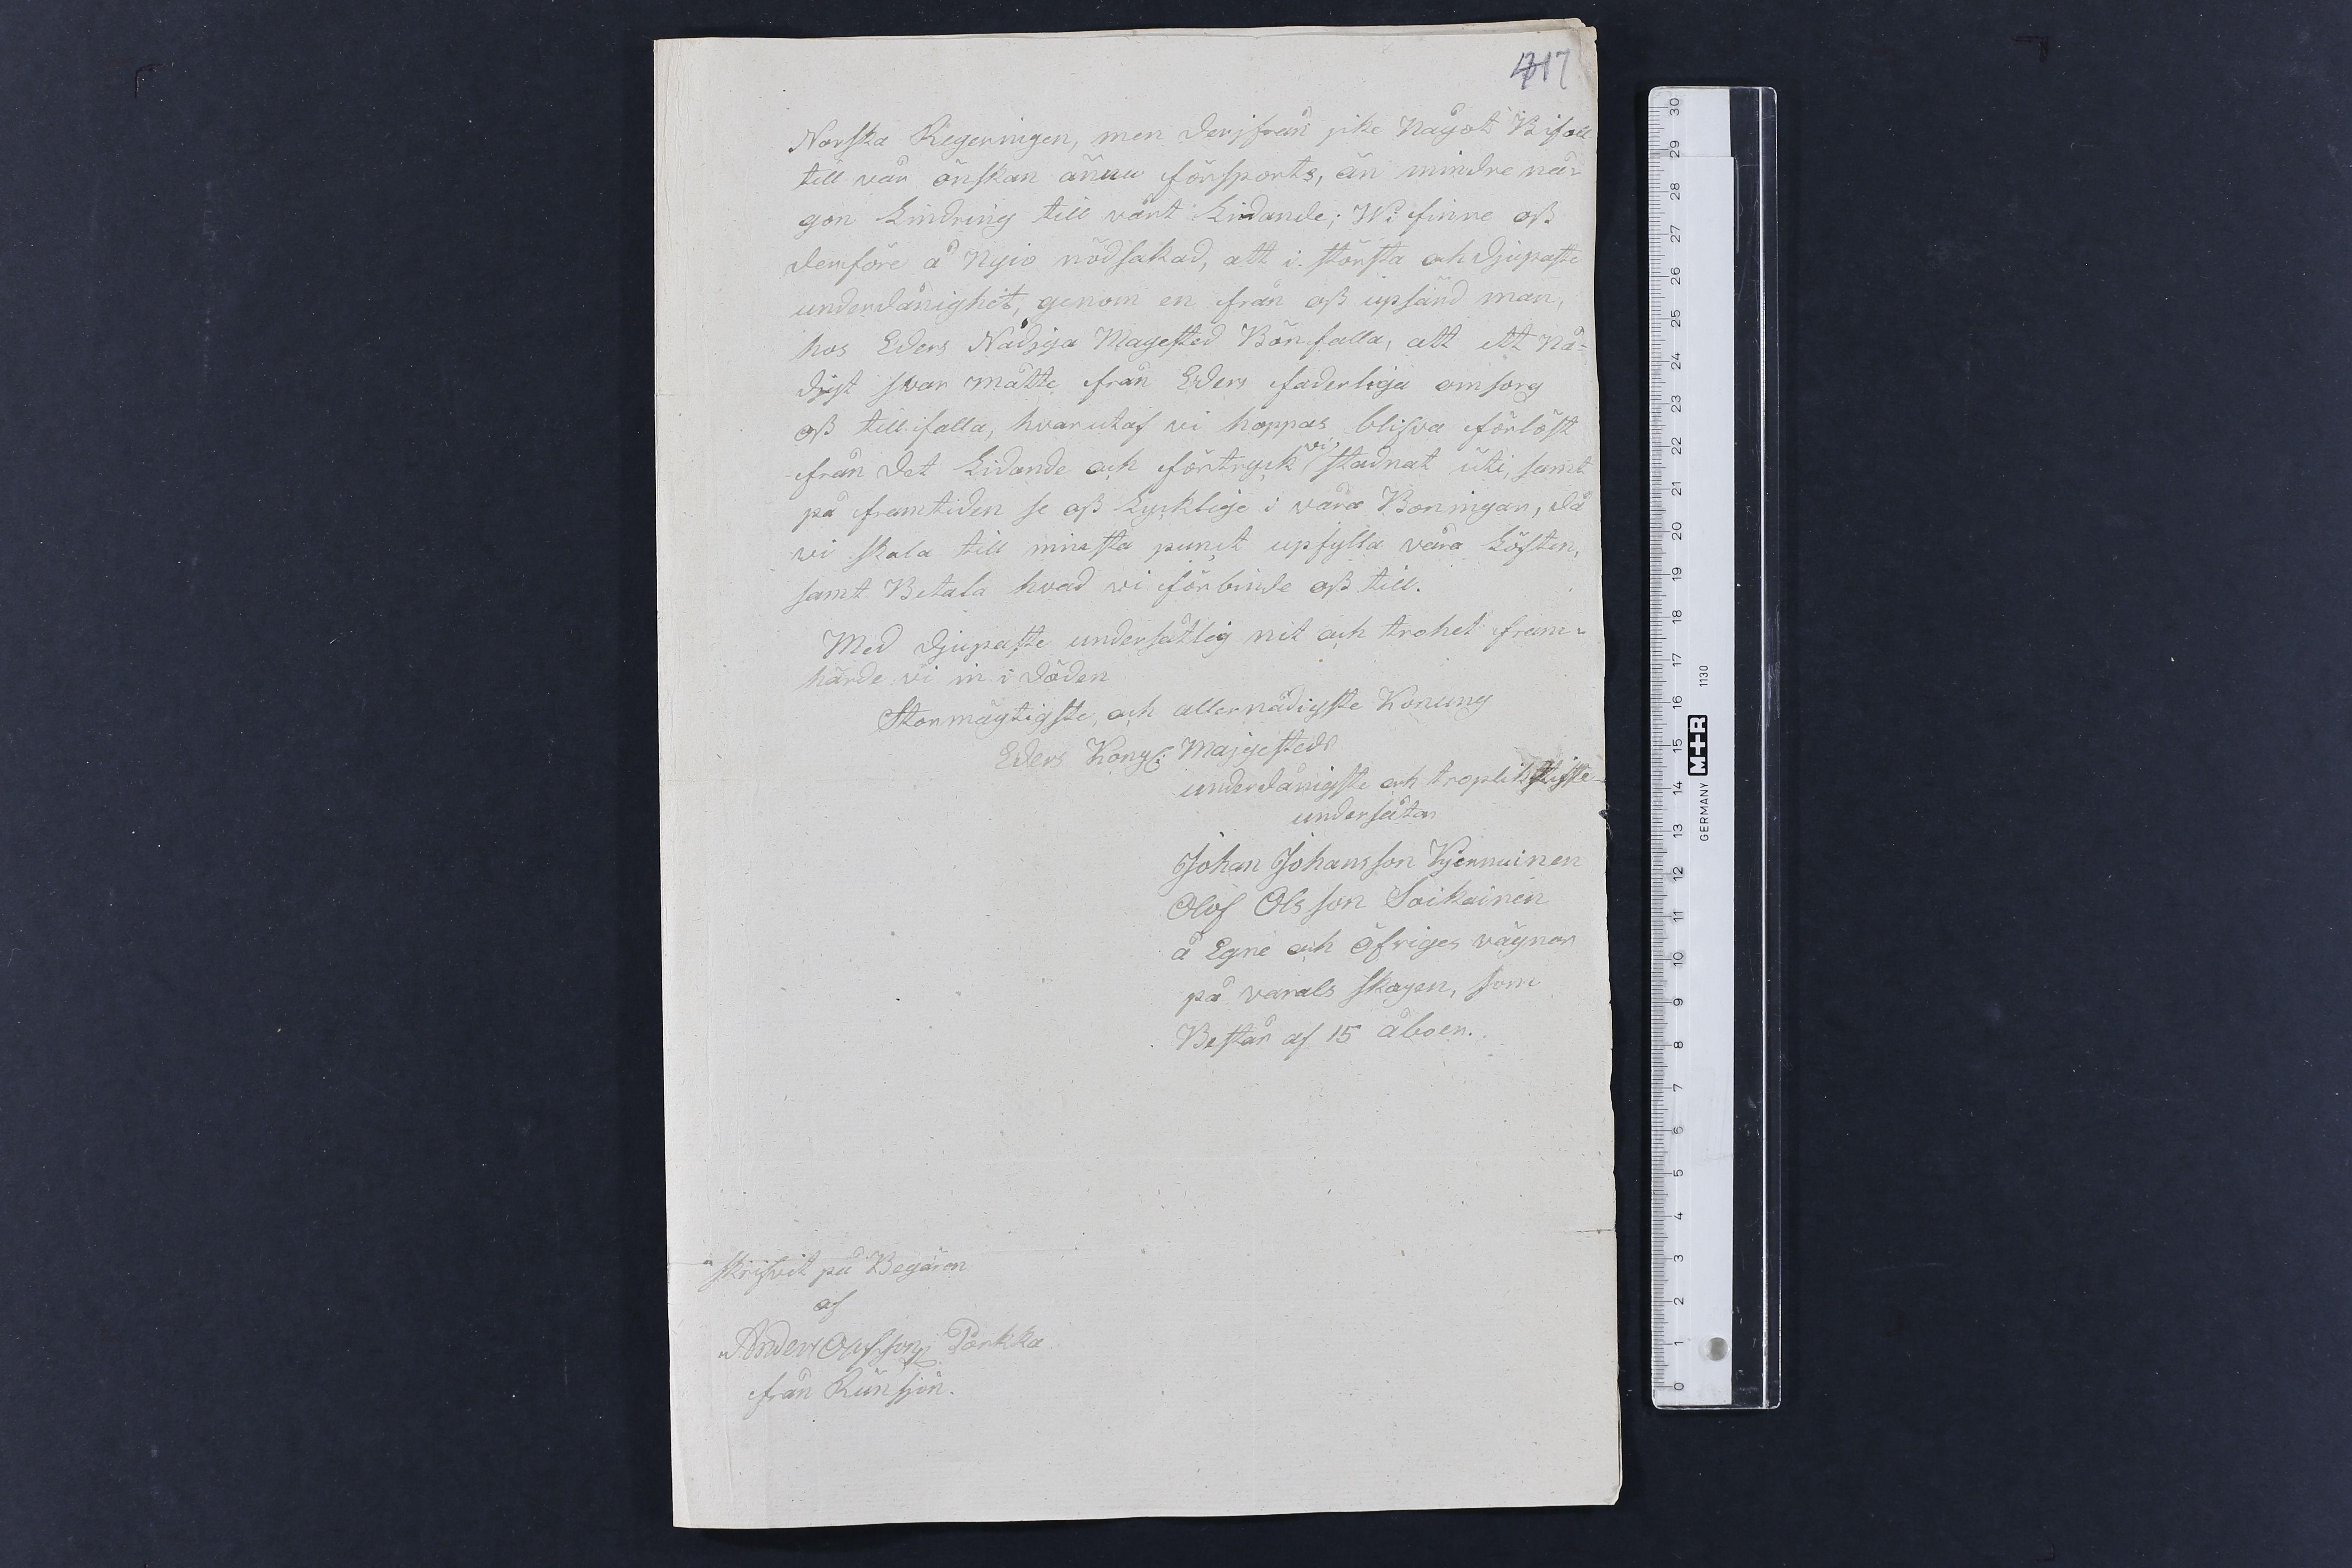 417
Norska Regeringen, men derifrån icke något Bifall
till vår önskan ännu försports, än mindre nå-
gon Lindring till vårt Lidande; Wi finne oß
derföre å Nyio nödsakad, att i största och djupaste
underdånighet, genom en från oß upsänd man,
hos Eders Nådiga Magested Bönfalla, att ett Nå-
digt svar måtte från Eders faderliga omsorg
oß tillfalla, hvarutaf vi hoppas blifva förlöst
från det Lidande och förtryck vi stadnat uti, samt
på framtiden se oß Lycklige i våra Boningar, då
vi skola till minsta punct upfylla våra Löften,
samt Betala hvad vi förbinde oß till.
Med djupaste undersåtlig nit och trohet fram-
härde vi in i döden
Stormägtigste, och allernådigste Konung
Eders Kongl: Majgesteds
underdånigste och tropliktigste
undersåtar
Johan Johansson Kjennuinen
Olof Olsson Soikainen
å Egne och Öfriges vägnar
på varalsskogen, som
Består af 15 åboer.
skrifvit på Begäran
af
Anders Olofsson Porkka
från Runsjön.
0 1 2 3 4 5 6 7 8 9 10 11 12 13 14 15 16 17 18 19 20 21 22 23 24 25 26 27 28 29 30
GERMANY M+R 1130